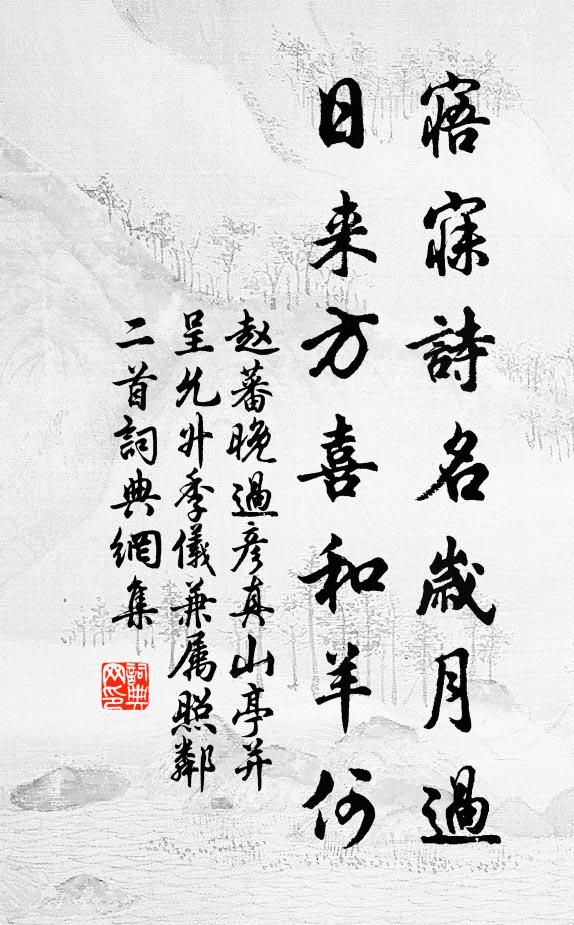 寤寐詩名歲月過
日来方喜和羊何
赵蕃晚過彦真山亭并
呈允升季儀兼属照鄰
二首詞典網集
詞典
网印